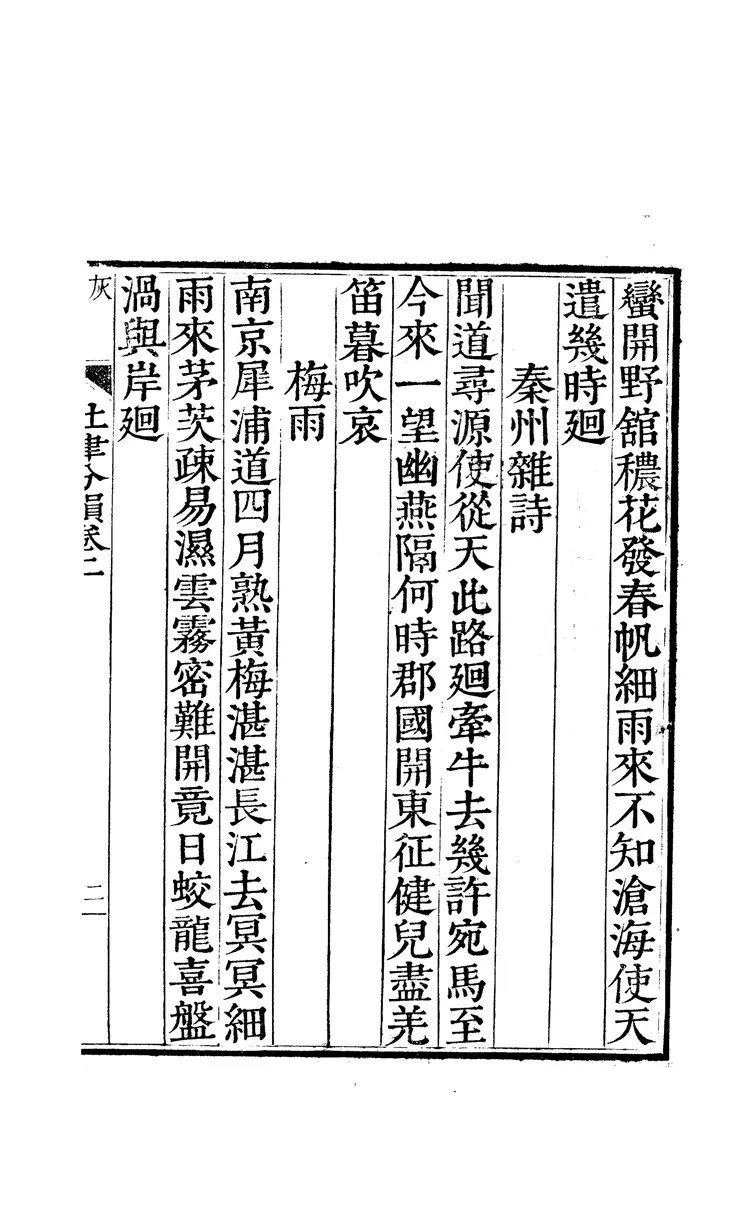 蠻開野舘穠花發春帆細雨來不知滄海使天
遣幾時廻
秦州雜詩
聞道尋源使從天此路廻牽牛去幾許宛馬至
今來一望幽燕隔何時郡國開東征健兒盡羌
笛暮吹哀
梅雨
南京犀浦道四月熟黃梅湛湛長江去冥冥細
雨來茅茨疎易濕雲霧密難開竟日蛟龍喜盤
渦與岸廻
灰
杜律分韻卷二
二